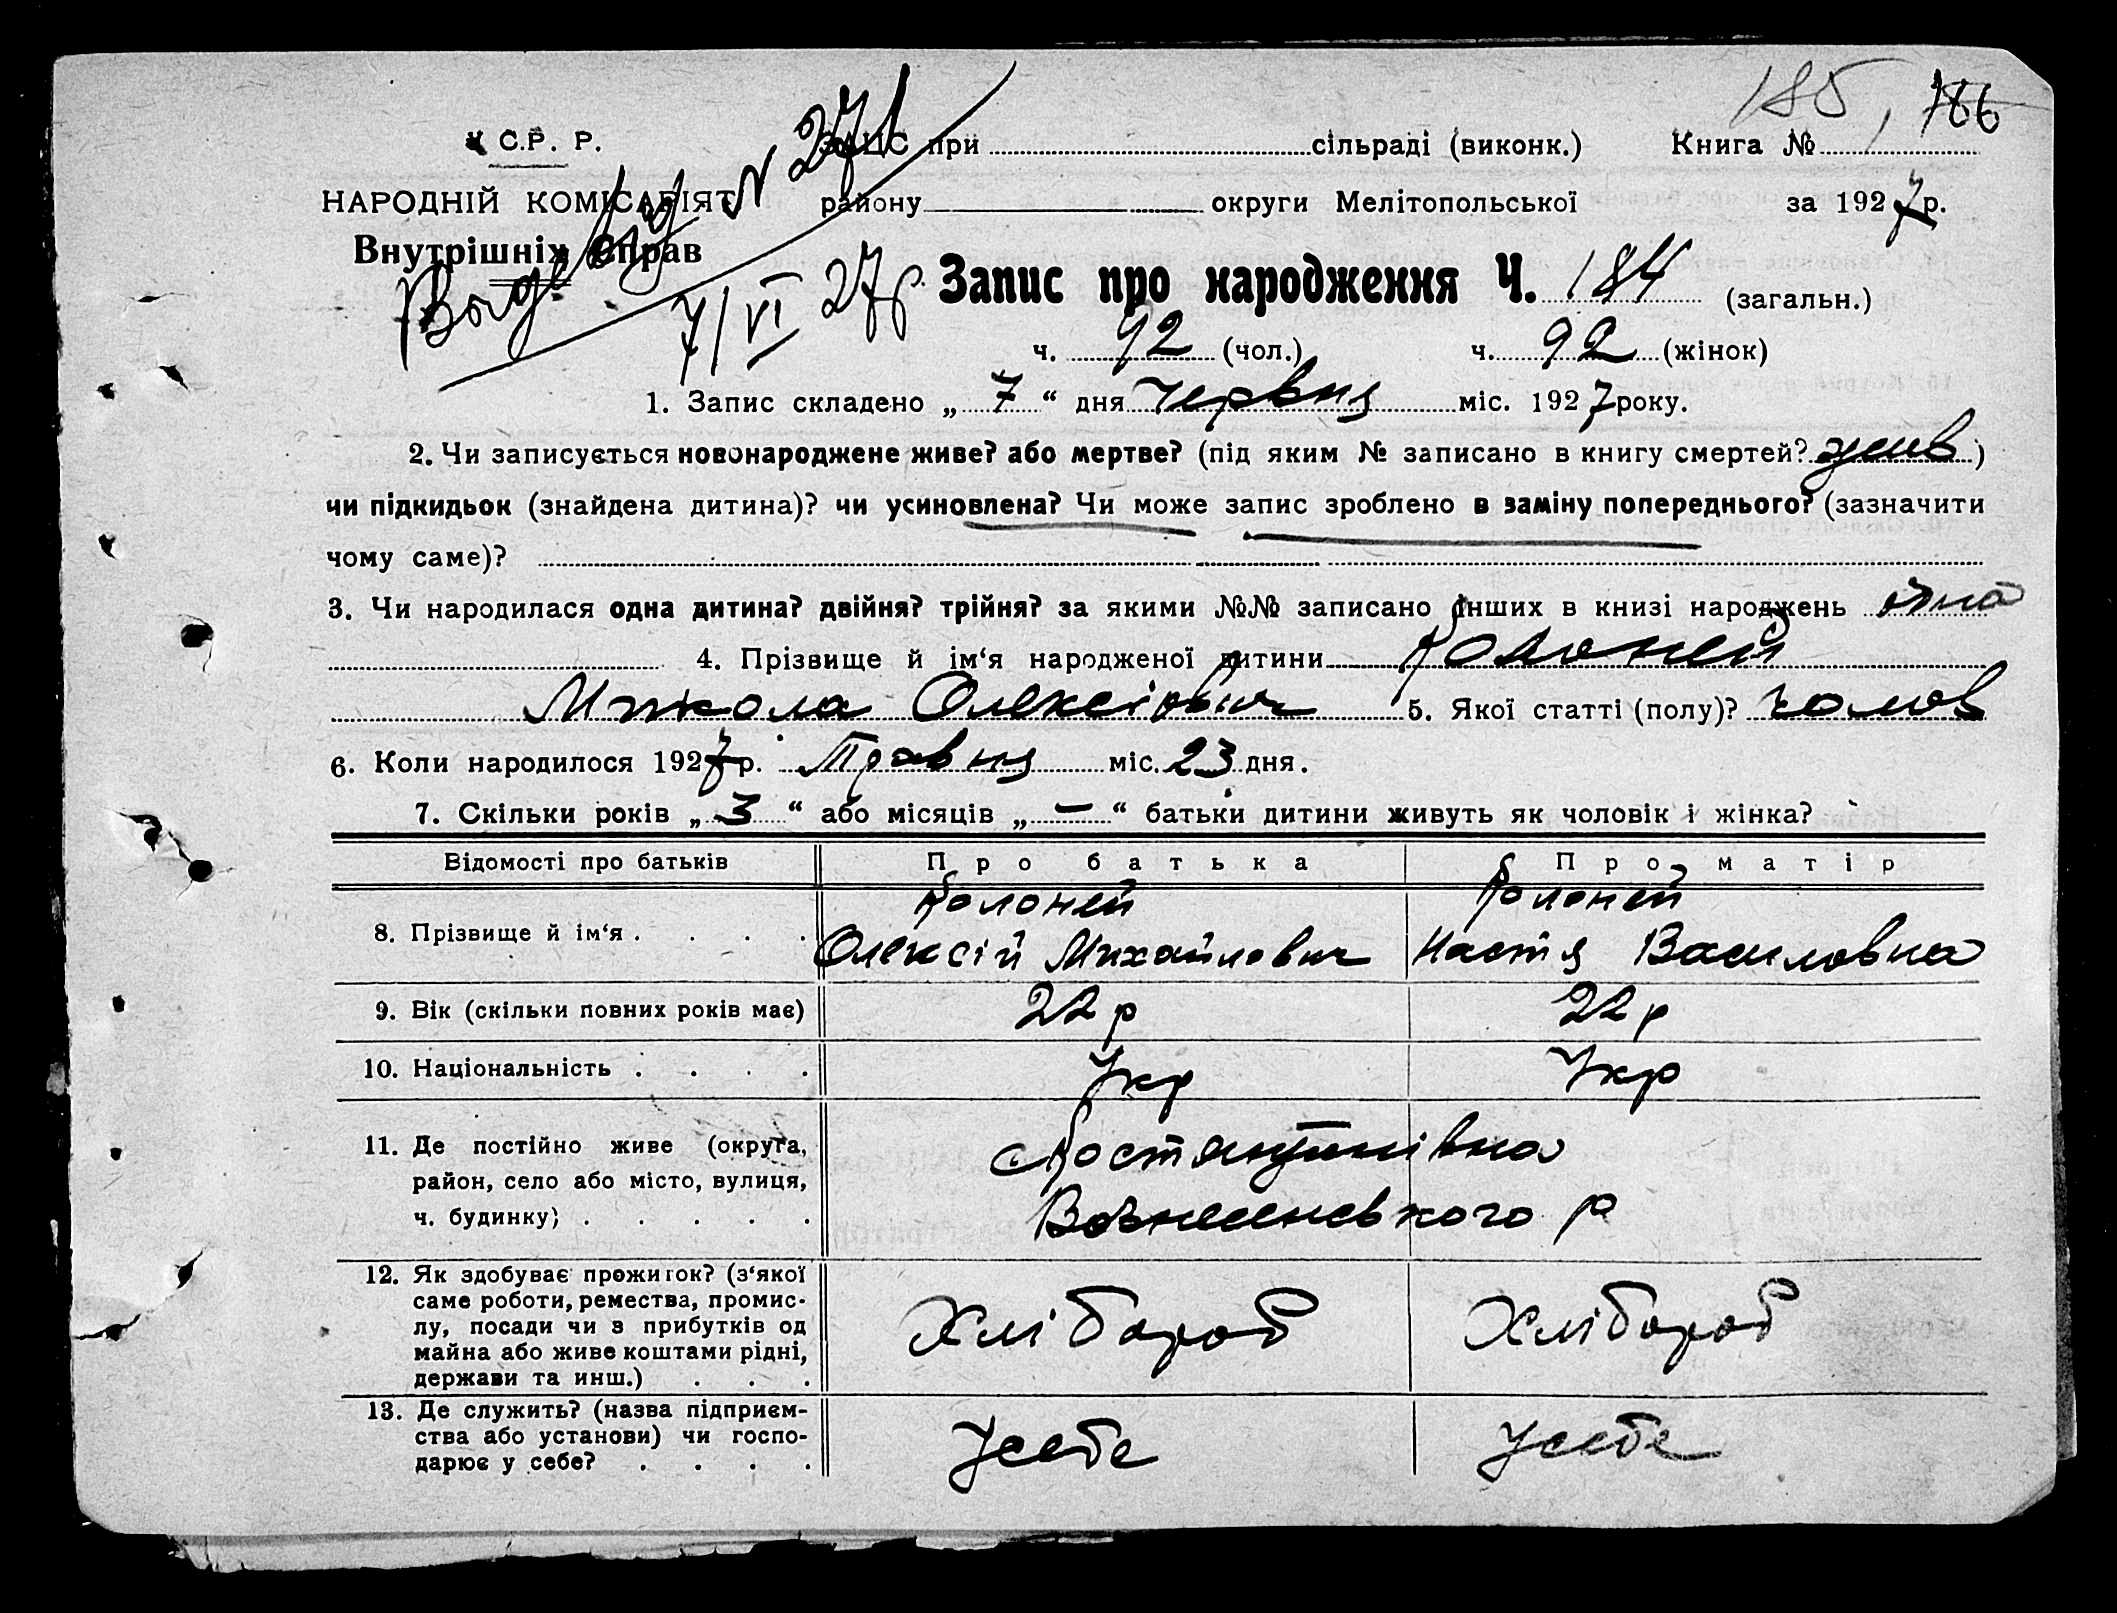 185, 186
У С.Р. Р. ЗАЦС при сільраді (виконк.) Книга №
НАРОДНІЙ КОМІСАРІЯТ району округи Мелітопольської за 1927 р.
Внутрішніх Справ
N 271
7/VI 27р.
Запис про народження Ч. 184 (загальн.)
ч. 92 (чол.) ч. 92 (жінок)
1. Запис складено „ 7 “ дня Червня міс. 1927 року.
2. Чи записується новонароджене живе? або мертве? (під яким № записано в книгу смертей? жив )
чи підкидьок (знайдена дитина)? чи усиновлена? Чи може запис зроблено в заміну попереднього? (зазначити
чому саме)?
3. Чи народилася одна дитина? двійня? трійня? за якими №№ записано інших в книзі народжень
4. Прізвище й ім‘я народженої дитини Колоней
Микола Олексієвич 5. Якої статті (полу)? чолов
6. Коли народилося 1927 р. Травня міс. 23 дня.
7. Скільки років „ 3 “ або місяців „ — “ батьки дитини живуть як чоловік і жінка?
Відомості про батьків Про батька Про матір
8. Прізвище й ім‘я . . . . Колоней Колоней
Олексій Михайлович Настя Василовна
9. Вік (скільки повних років має) 22 р 22 р
10. Національність . . . . Укр Укр
11. Де постійно живе (округа,
район, село або місто, вулиця,
ч. будинку) . . . . .
с Костянтинівка
Вознесенсвкого р
12. Як здобуває прожиток? (з‘якої
саме роботи, ремества, промис-
лу, посади чи з прибутків од
майна або живе коштами рідні,
держави та инш.) . . .
Хлібороб Хлібороб
13. Де служить? (назва підприєм-
ства або установи) чи госпо-
дарює у себе? . . . .
Усебе Усебе